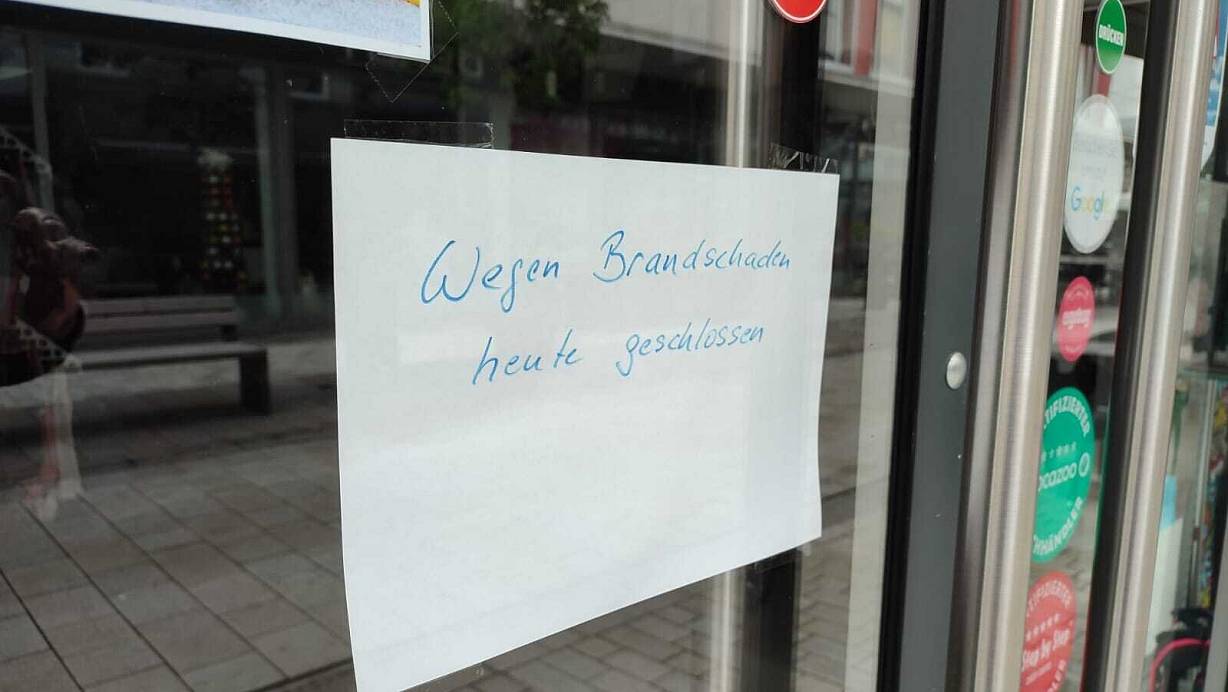 Wegen Brandschaden
heute geschlossen
DRÜCKEN
Google
TIFIZIERTER
ocazoo
HHÄNDLER
TIFIZIERTER
Step by Step
LER